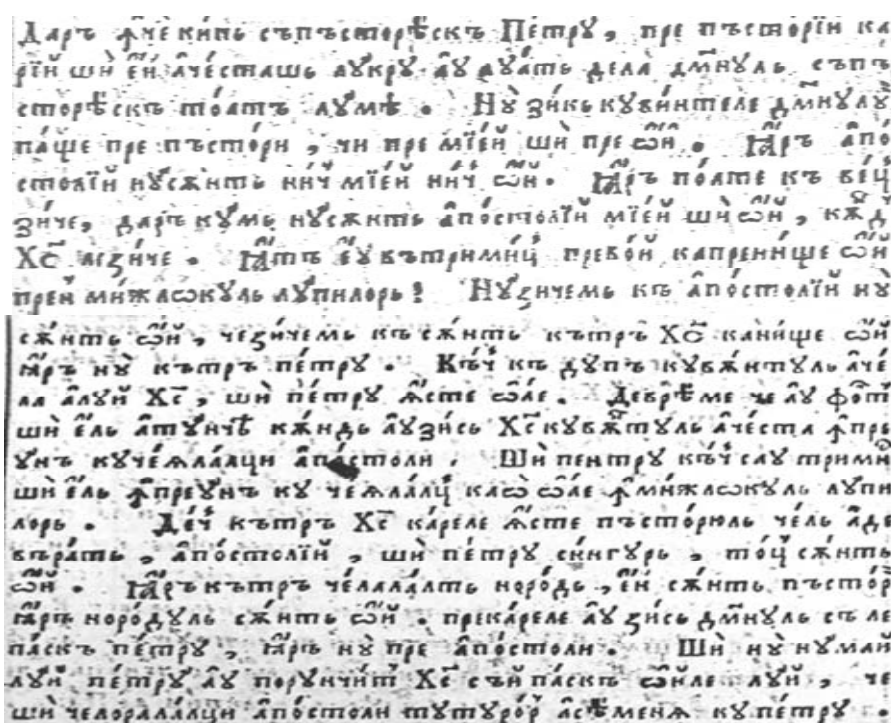 Даръ ꙟ҆че ки́пь съпъсторѣ́скъ Пе́трꙋ, пре пъсторїи ка
рїй шѝ є҆́й а҆че́сташь лꙋкрꙋ а҆ꙋ лꙋа́ть дела дм҃нꙋль съпъ
сторѣ́скъ то́атъ лꙋмѣ . Нꙋ̀ зи́кь кꙋви́нтеле дм҃нꙋлꙋ
па́ще пре пъсто́ри , чи пре мїе́й шѝ пре ѡ҆́й . Ꙗ҆́ръ а҆по́
столїй нꙋсжнть ни́ч мїе́й ни́ч ѡ҆́й . Ꙗ҆́ръ по́ате къ ве́ц
зи́че, даръ кꙋмь нꙋсжнть а҆по́столїй мїе́й шѝ ѡ҆́й , кжд
Хс҃ лезиче . Ꙗ҆тъ є҆ꙋ вътрими́ц прево́й капрени́ще ѡ҆́й
прен ми́жлѡкꙋль лꙋпилорь ! Нꙋзичемь къ а҆по́столїй нꙋ
сжнть ѡ҆́й , чезичемь къ сжнть кътръ Хс҃ кани́ще ѡ҆́й
ꙗ҆́ръ нꙋ кътръ пе́трꙋ . Къ́ч къ дꙋпъ кꙋвжнтꙋль а҆че́
ла а҆лꙋ́й Хс҃ , шѝ пе́трꙋ ꙗ҆́сте ѡ҆́ле . Девре́ме че а҆ꙋ фо́ст
шѝ є҆ль а҆тꙋнчѣ кжндь а҆ꙋзи́сь Хс҃ кꙋвжтꙋль а҆че́ста ꙟ҆пре
ꙋнъ кꙋчеѧла́лци а҆по́столи . Шѝ пентрꙋ къч саꙋ трими́
шѝ є҆ль ꙟ҆преꙋнъ кꙋ чеѧла́лц каѡ ѡ҆́ле ꙟ҆ми́жлѡкꙋль лꙋпи
лорь . Де́ч кътръ Хс҃ ка́реле ꙗ҆́сте пъсто́рюль че́ль а҆де
въра́ть , а҆по́столїй , шѝ пе́трꙋ си́нгꙋрь , то́ц сжнть
ѡ҆́й . Ꙗ҆́ръ кътръ че́лала́лть норо́дь , є҆́й сжнть пъсто́р
ꙗ҆́ръ норо́дꙋль сжнть ѡ҆́й . прека́реле а҆ꙋ зи́сь дм҃нꙋль съ ле
па́скъ пе́трꙋ , ꙗ҆́ръ нꙋ̀ пре а҆по́столи . Шѝ нꙋ̀ нꙋма́й
лꙋ́й пе́трꙋ а҆ꙋ порꙋнчи́т Хс҃ съй па́скъ ѡ҆́йле лꙋ́й , че
шѝ челорала́лци а҆по́столи тꙋтꙋро́р а҆сѣменѧ кꙋпе́трꙋ .